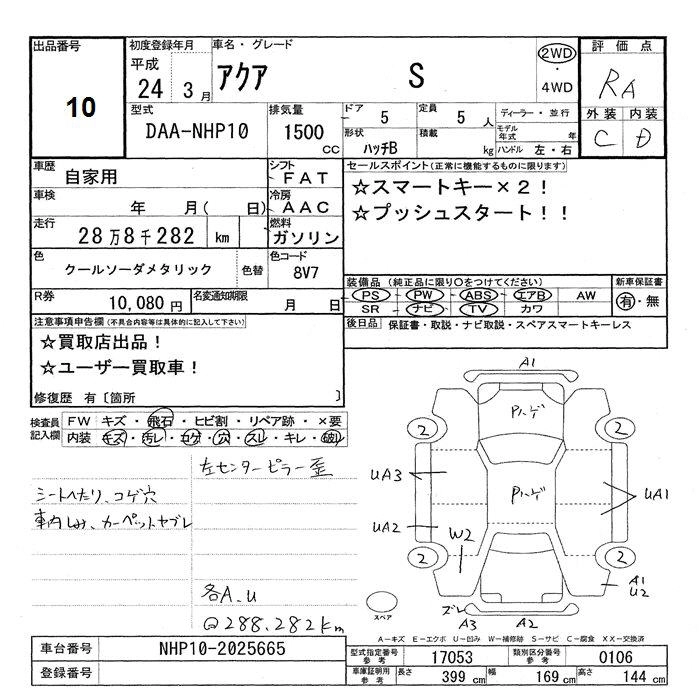 出品番号
10
初度登録年月
平成
24 3月
車名・グレード
アクア S
2WD
・
4WD
評価点
RA
外装 内装
C D
型式
DAA-NHP10
排気量
1500 CC
ドア
5
定員
5 人
形状
ハッチB
積載
kg
ディーラー・並行
モデル年式 年
ハンドル 左・右
車歴
自家用
シフト
FAT
車検
年 月( 日)
冷房
AAC
走行
28万8千282 km
燃料
ガソリン
色
クールソーダメタリック
色替
色コード
8V7
R券
10,080円
名変通知期限
月 日
セールスポイント(正常に機能するものに限ります)
☆スマートキー×2!
☆プッシュスタート!!
装備品(純正品に限り○をつけてください)
PS PW ABS エアB AW
SR ナビ TV カワ
新車保証書
有・無
後日品 保証書・取説・ナビ取説・スペアスマートキーレス
注意事項申告欄(不具合内容等は具体的に記入して下さい)
☆買取店出品!
☆ユーザー買取車!
修復歴 有〔箇所 〕
検査員記入欄
FW キズ・飛石・ヒビ割・リペア跡・×要
内装 キズ・汚レ・コゲ・穴・スレ・キレ・破レ
左センターピラー歪
シートへたり、コゲ穴
車内しみ、カーペットヤブレ
各A、U
◎288,282km
A1
Pハゲ
2 2
UA3
Pハゲ
UA1
UA2
W2
2 2
A1
U2
ズレ
A3 A2
スペア
A-キズ E-エクボ U-凹み W-補修跡 S-サビ C-腐食 XX-交換済
車台番号 NHP10-2025665
登録番号
型式指定番号 参考 17053
類別区分番号 参考 0106
車庫証明用 参考 長さ 399 cm 幅 169 cm 高さ 144 cm